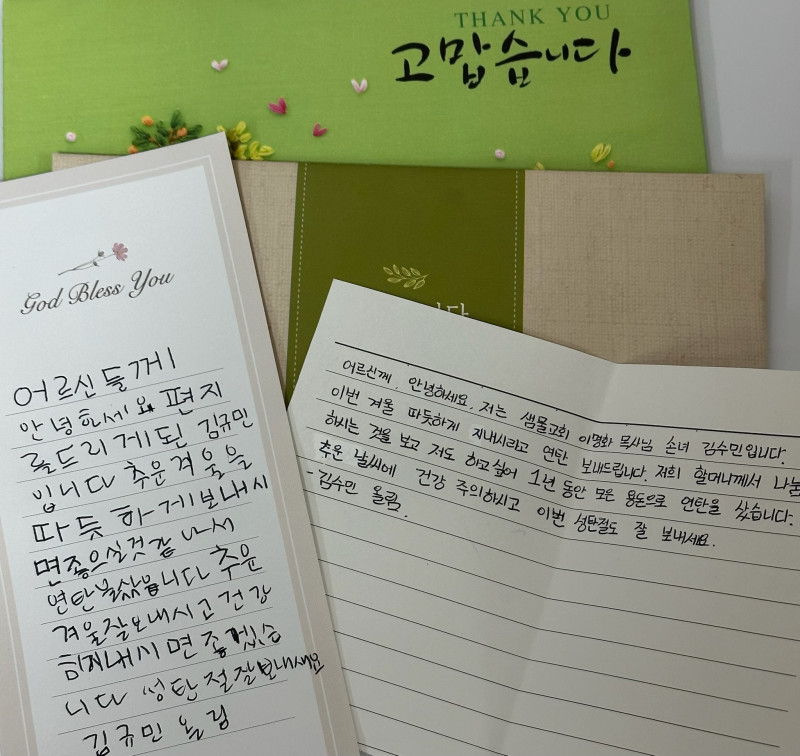 THANK YOU
고맙습니다
God Bless You
어르신들께
안녕하세요 편지
를드리게된 김규민
입니다 추운겨울을
따듯하게보내시
면좋으실것같아서
연탄을샀습니다 추운
겨울잘보내시고건강
히지내시면 좋겠습
니다 성탄절잘보내세요
김규민 올림
어르신께. 안녕하세요. 저는 샘물교회 이명화 목사님 손녀 김수민입니다.
이번 겨울 따듯하게 지내시라고 연탄 보내드립니다. 저희 할머니께서 나눔
하시는 것을 보고 저도 하고싶어 1년 동안 모은 용돈으로 연탄을 샀습니다.
추운 날씨에 건강 주의하시고 이번 성탄절도 잘 보내세요.
- 김수민 올림.